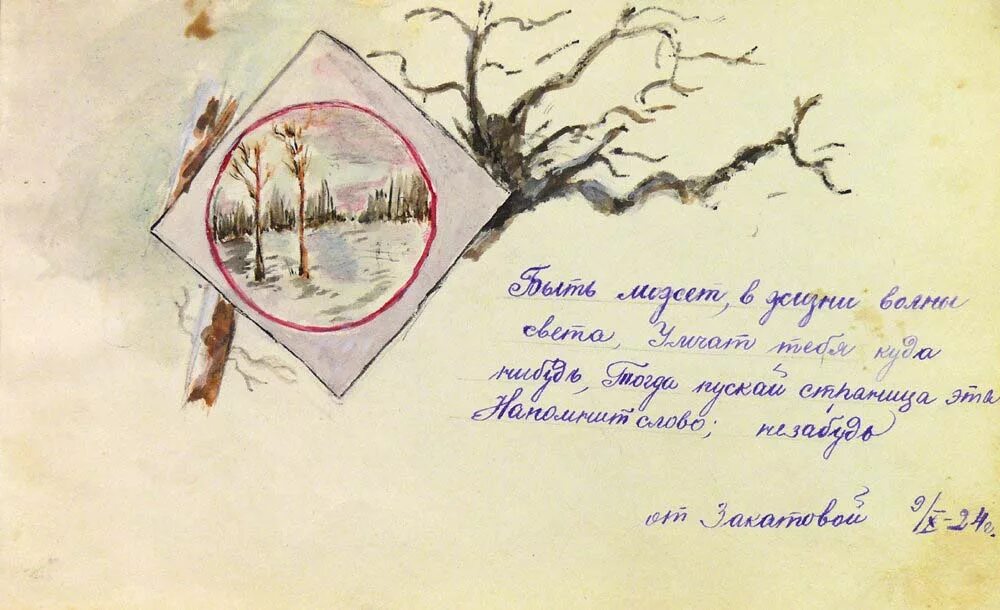 Быть может, в жизни волны
света, Умчат тебя куда
нибудь, Тогда пускай страница эта
Напомнит слово; незабудь
от Закатовой 9/X-24г.